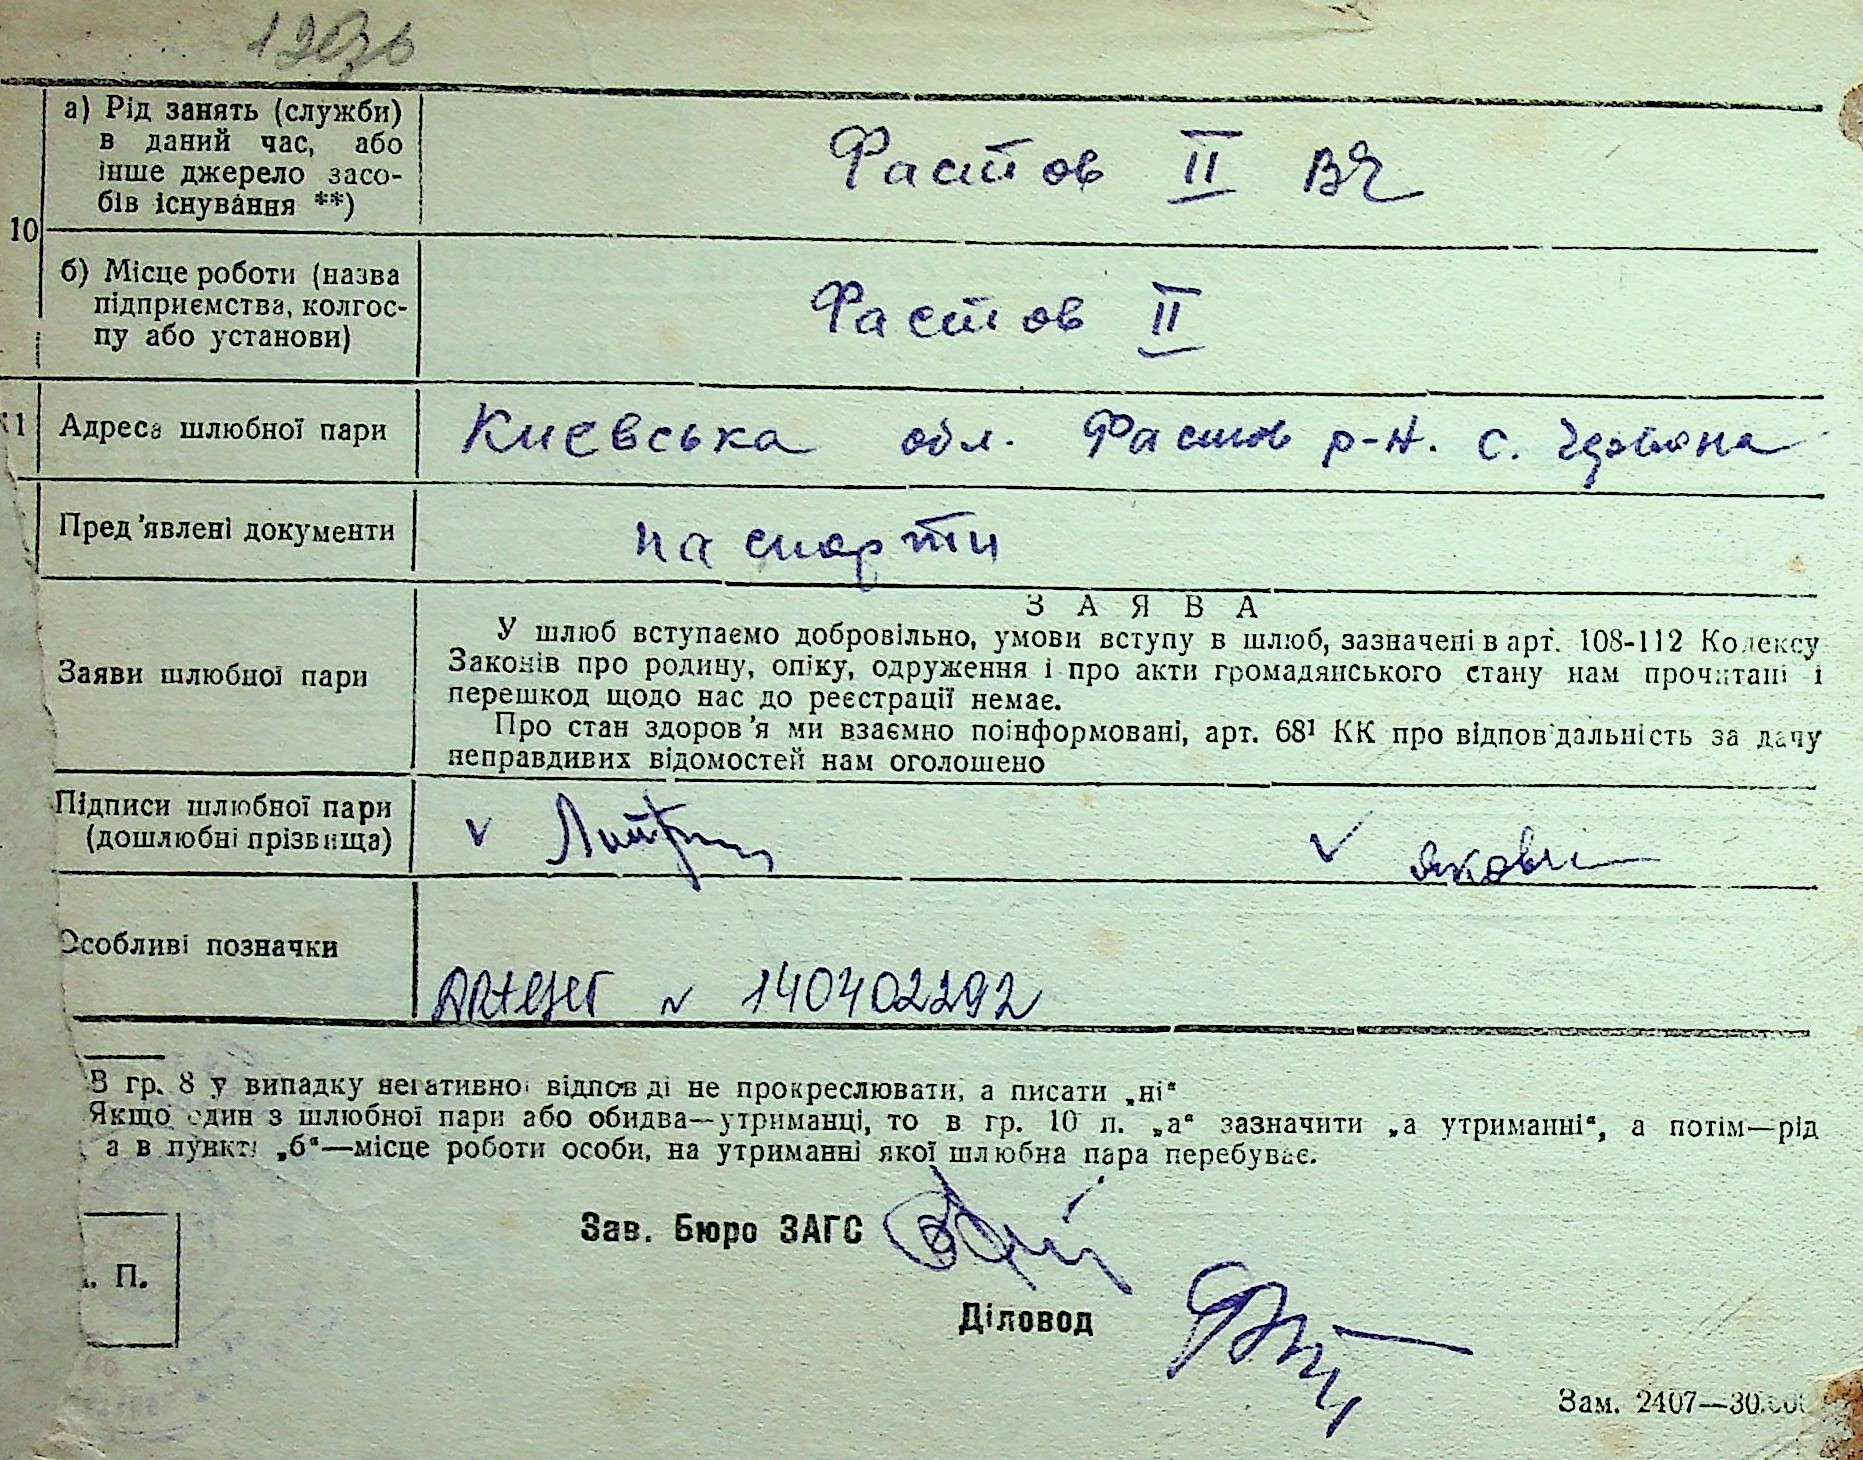 а) Рід занять (служби)
в даний час, або
інше джерело засо-
бів існування **)
Фастов II ВЧ
10
б) Місце роботи (назва
підприємства, колгос-
пу або установи)
Фастов II
11
Адреса шлюбної пари
Киевська обл. Фастов р-н. с. Червона
Пред'явлені документи
паспорти
Заяви шлюбної пари
ЗАЯВА
У шлюб вступаємо добровільно, умови вступу в шлюб, зазначені в арт. 108-112 Кодексу
Законів про родину, опіку, одруження і про акти громадянського стану нам прочитані і
перешкод щодо нас до реєстрації немає.
Про стан здоров'я ми взаємно поінформовані, арт. 68¹ КК про відповідальність за дачу
неправдивих відомостей нам оголошено
Підписи шлюбної пари
(дошлюбні прізвища)
Особливі позначки
140402292
В гр. 8 у випадку негативної відповіді не прокреслювати, а писати „ні“
Якщо один з шлюбної пари або обидва—утриманці, то в гр. 10 п. „а“ зазначити „а утриманні“, а потім—рід
а в пункті „б“—місце роботи особи, на утриманні якої шлюбна пара перебуває.
Зав. Бюро ЗАГС
П.
Діловод
Зам. 2407—30.000